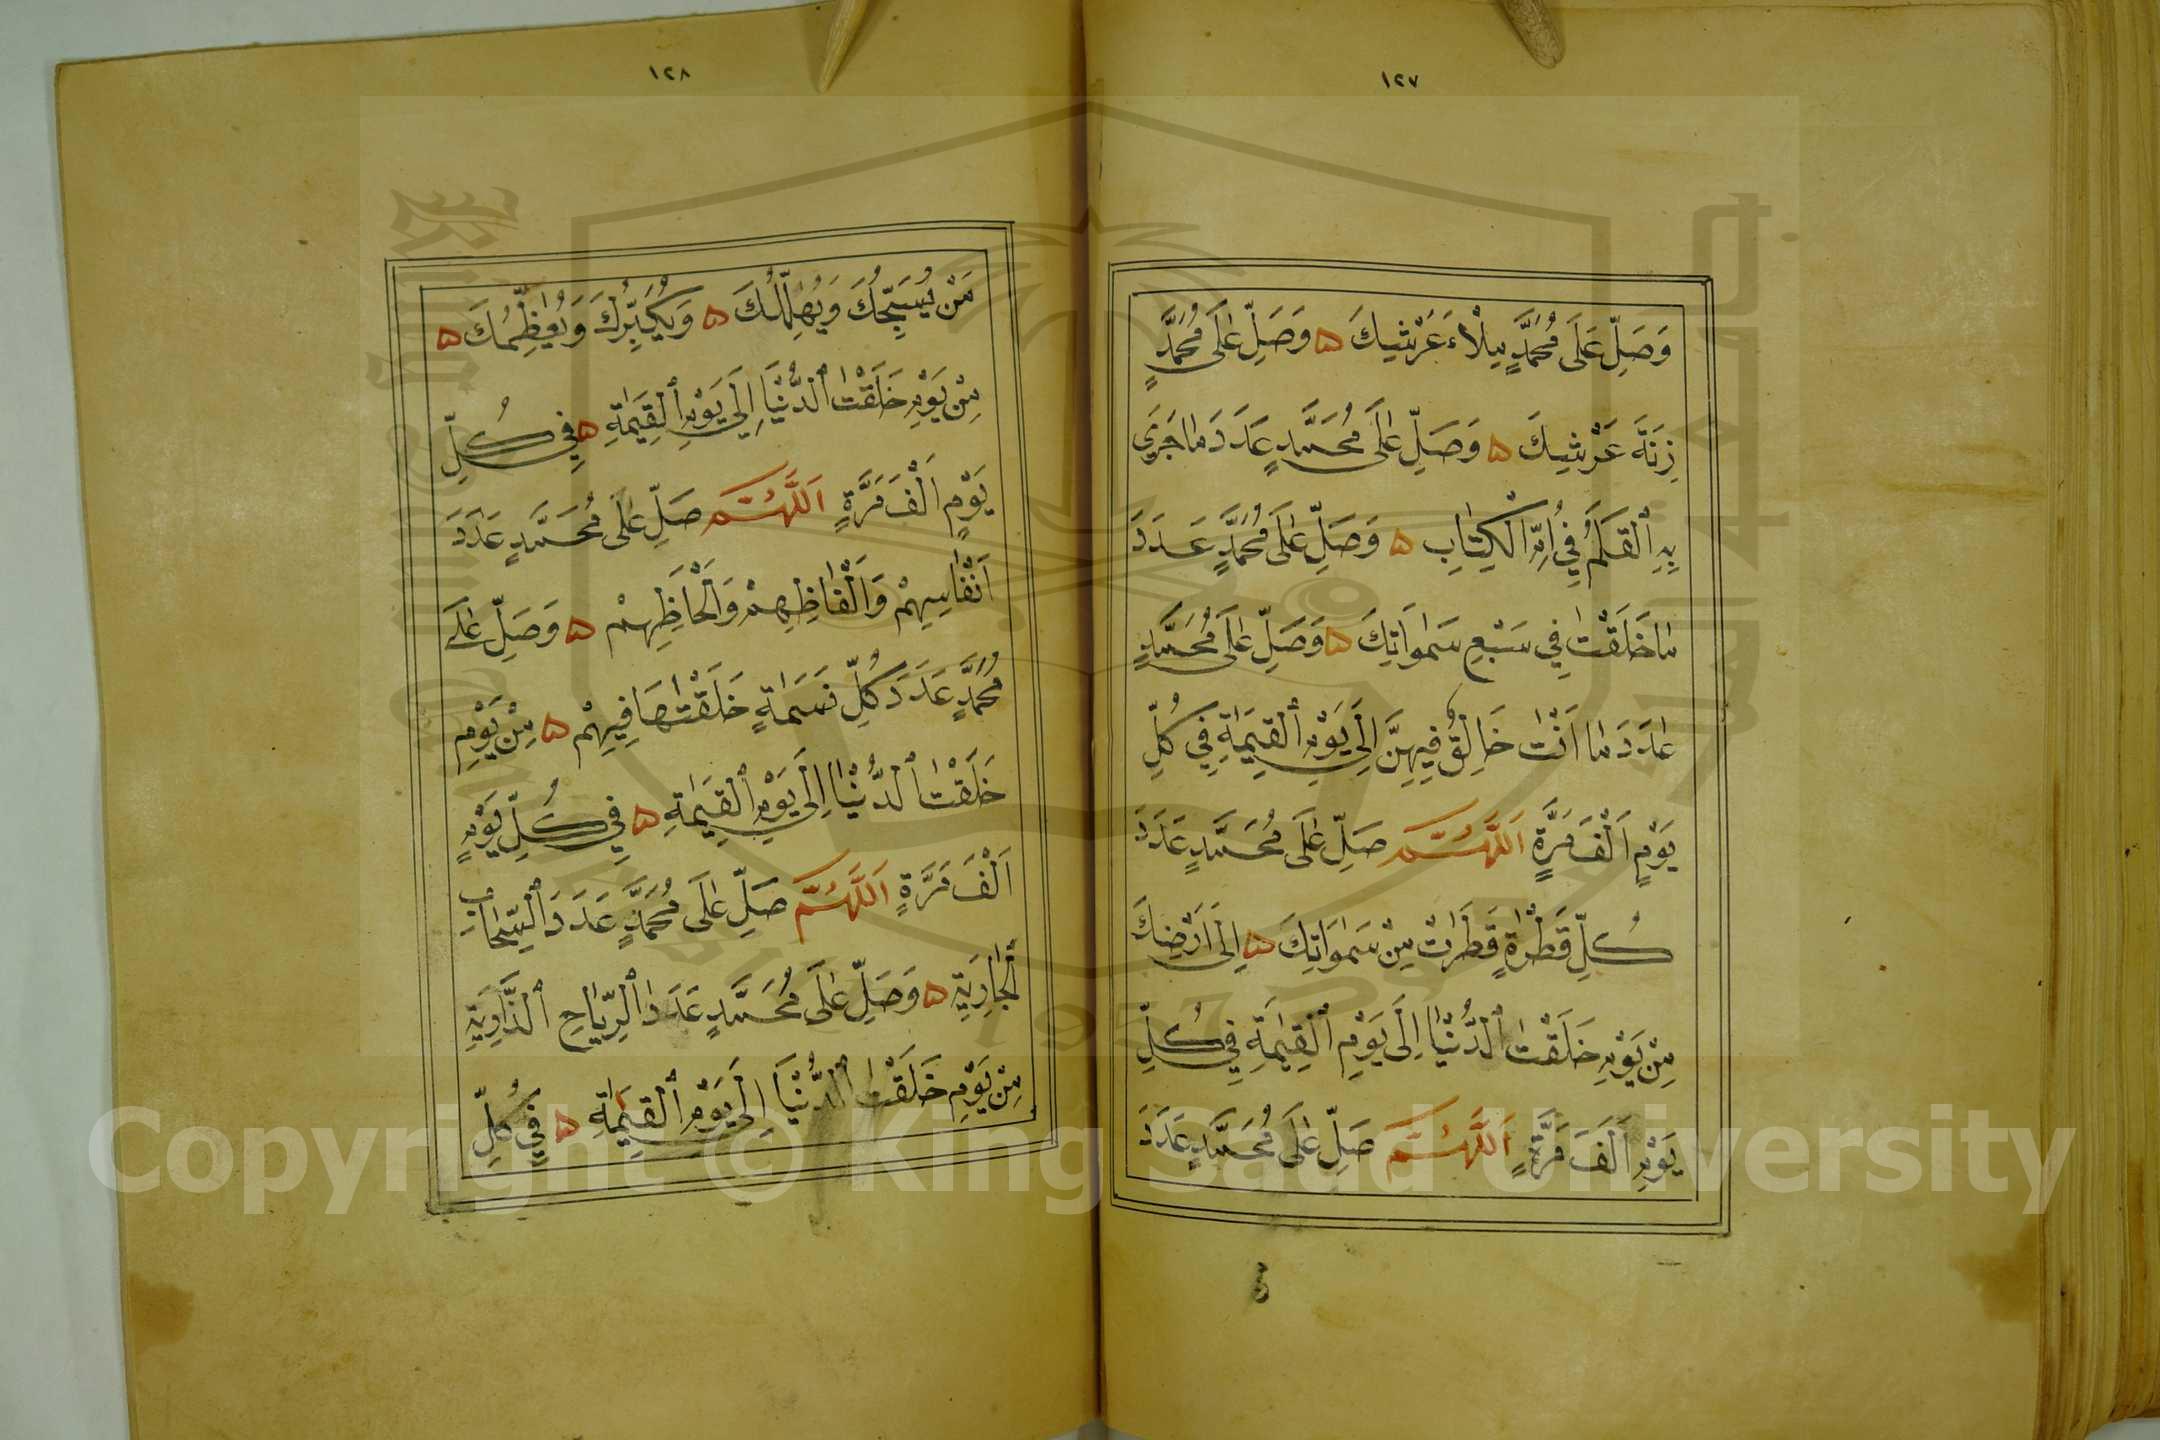 ١٢٧
وَصَلِّ عَلَى مُحَمَّدٍ مِلْأَ عَرْشِكَ ه وَصَلِّ عَلَى مُحَمَّدٍ
زِنَةَ عَرْشِكَ ه وَصَلِّ عَلَى مُحَمَّدٍ عَدَدَ مَا جَرَى
بِهِ ٱلْقَلَمُ فِي أُمِّ الْكِتَابِ ه وَصَلِّ عَلَى مُحَمَّدٍ عَدَدَ
مَا خَلَقْتَ فِي سَبْعِ سَمٰوَاتِكَ ه وَصَلِّ عَلَى مُحَمَّدٍ
عَدَدَ مَا اَنْتَ خَالِقٌ فِيهِنَّ اِلَى يَوْمِ ٱلْقِيٰمَةِ فِي كُلِّ
يَوْمٍ اَلْفَ مَرَّةٍ اَللَّهُمَّ صَلِّ عَلَى مُحَمَّدٍ عَدَدَ
كُلِّ قَطْرَةٍ قَطَرَتْ مِنْ سَمٰوَاتِكَ ه اِلَى اَرْضِكَ
مِنْ يَوْمِ خَلَقْتَ ٱلدُّنْيَا اِلَى يَوْمِ ٱلْقِيٰمَةِ فِي كُلِّ
يَوْمٍ اَلْفَ مَرَّةٍ اَللَّهُمَّ صَلِّ عَلَى مُحَمَّدٍ عَدَدَ
١٢٨
مَنْ يُسَبِّحُكَ وَيُهَلِّلُكَ ه وَيُكَبِّرُكَ وَيُعَظِّمُكَ ه
مِنْ يَوْمِ خَلَقْتَ ٱلدُّنْيَا اِلَى يَوْمِ ٱلْقِيٰمَةِ ه فِي كُلِّ
يَوْمٍ اَلْفَ مَرَّةٍ اَللَّهُمَّ صَلِّ عَلَى مُحَمَّدٍ عَدَدَ
اَنْفَاسِهِمْ وَاَلْفَاظِهِمْ وَاَلْحَاظِهِمْ ه وَصَلِّ عَلَى
مُحَمَّدٍ عَدَدَ كُلِّ نَسَمَةٍ خَلَقْتَهَا فِيهِمْ ه مِنْ يَوْمِ
خَلَقْتَ ٱلدُّنْيَا اِلَى يَوْمِ ٱلْقِيٰمَةِ ه فِي كُلِّ يَوْمٍ
اَلْفَ مَرَّةٍ اَللَّهُمَّ صَلِّ عَلَى مُحَمَّدٍ عَدَدَ ٱلسَّحَابِ
ٱلْجَارِيَةِ ه وَصَلِّ عَلَى مُحَمَّدٍ عَدَدَ ٱلرِّيَاحِ ٱلذَّارِيَةِ
مِنْ يَوْمِ خَلَقْتَ ٱلدُّنْيَا اِلَى يَوْمِ ٱلْقِيٰمَةِ ه فِي كُلِّ
Copyright © King Saud University
1957